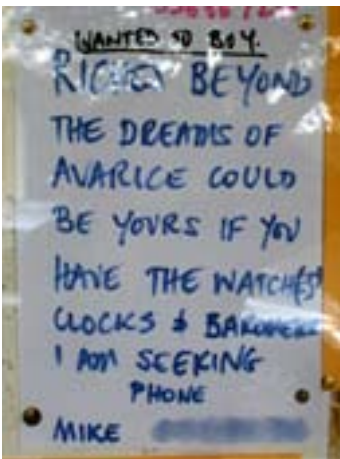 WANTED TO BUY.
RICHES BEYOND
THE DREAMS OF
AVARICE COULD
BE YOURS IF YOU
HAVE THE WATCHES
CLOCKS & BAROMETERS
I AM SEEKING
PHONE
MIKE